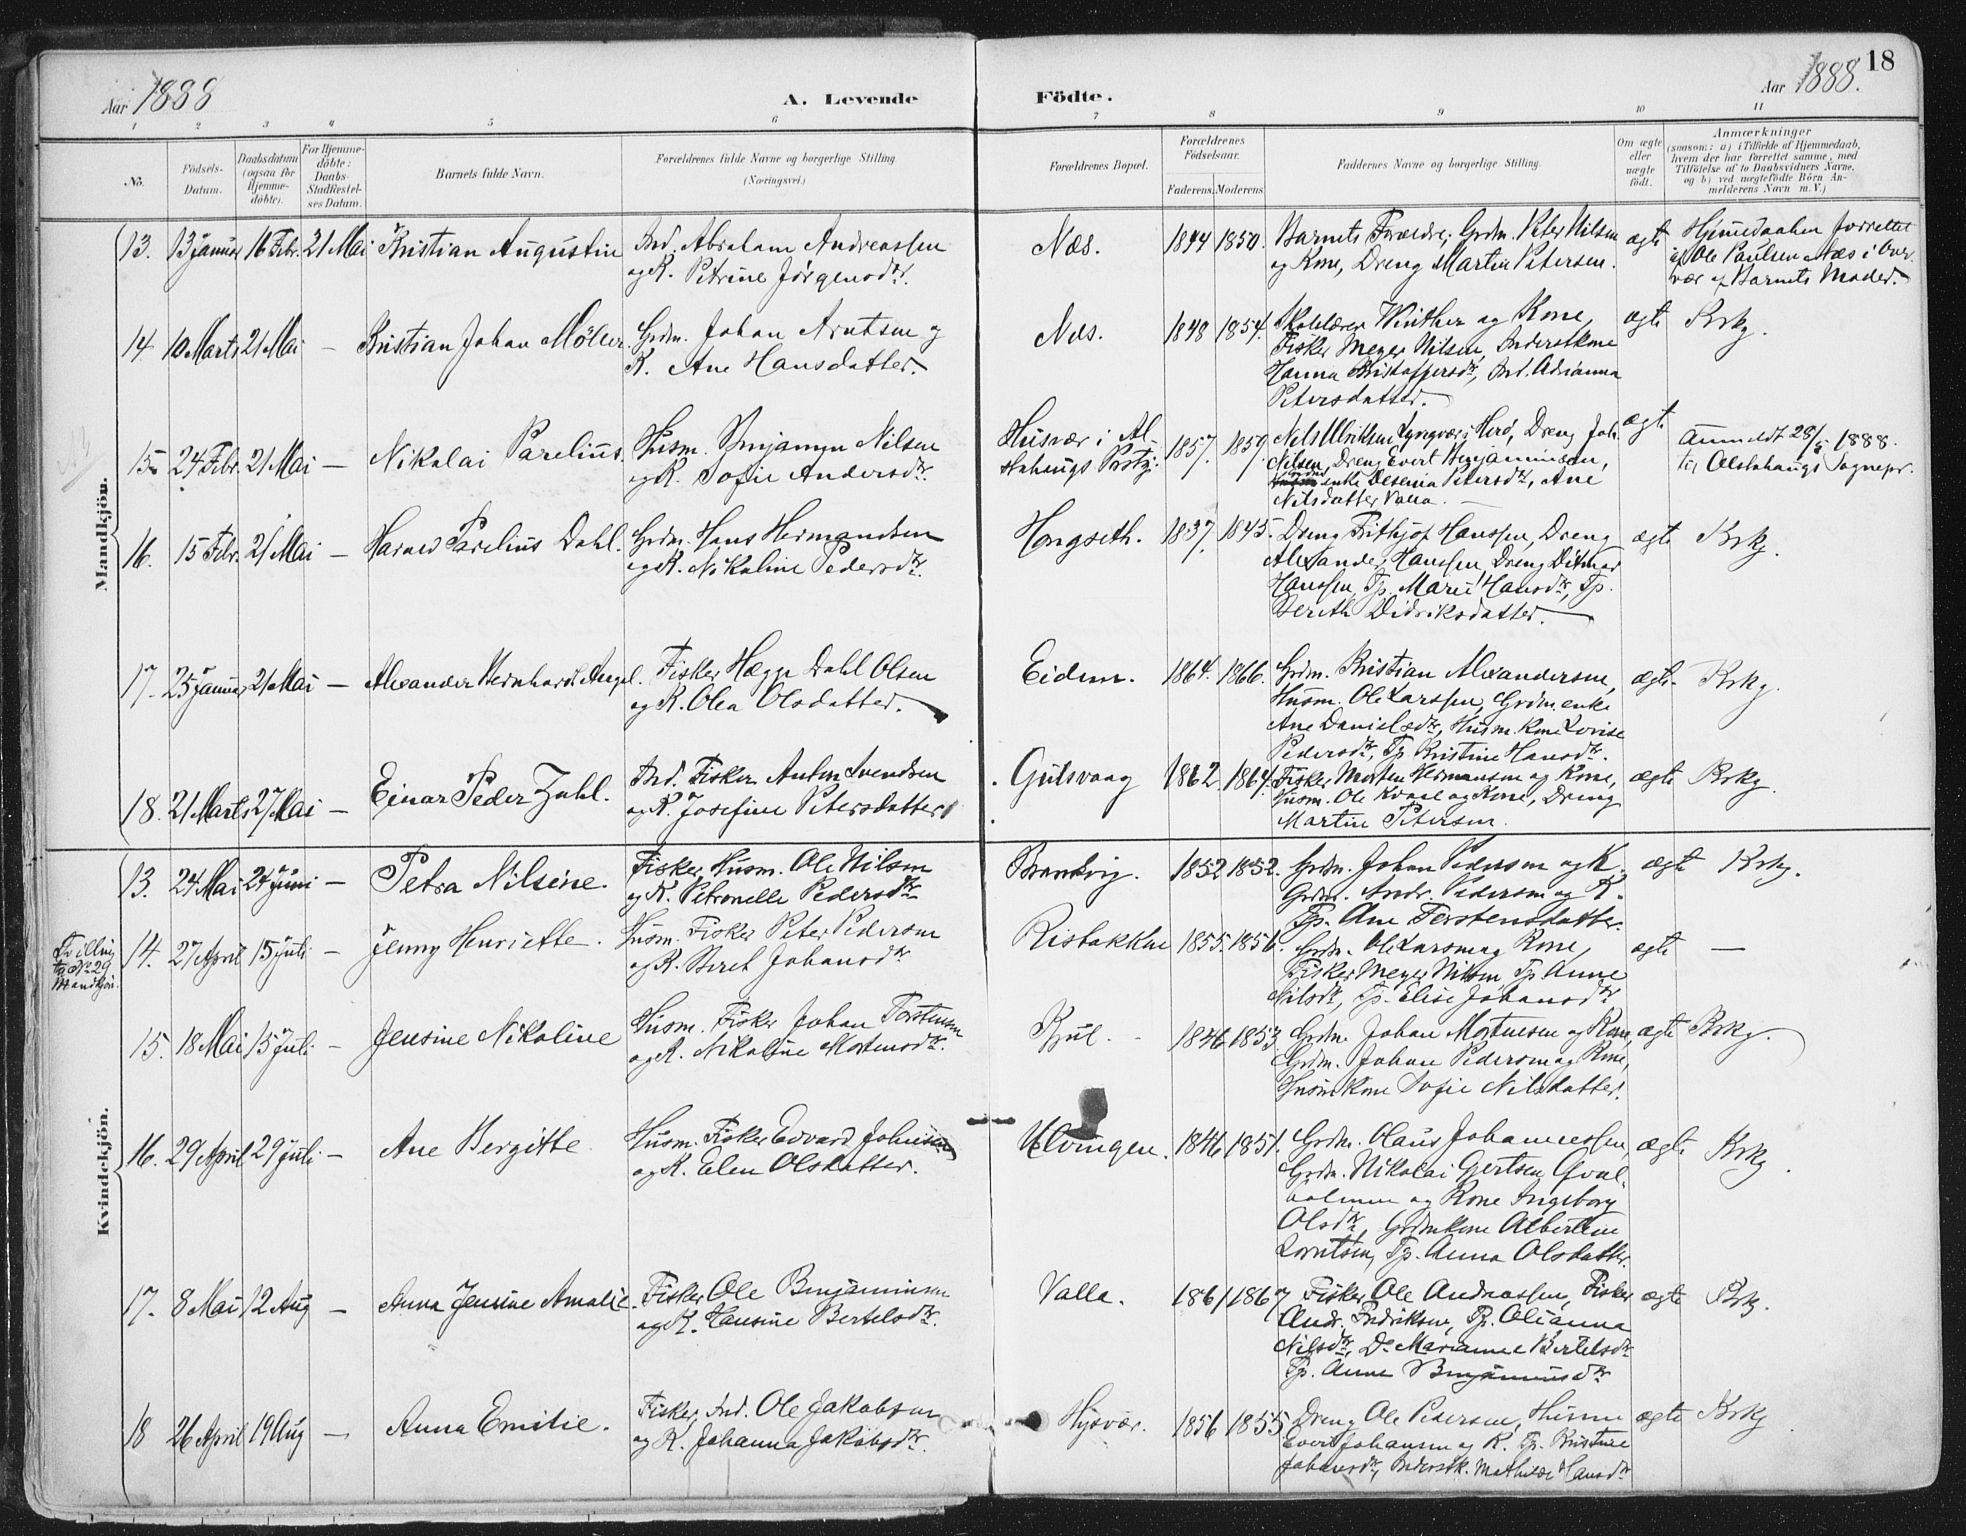 Aar 1888
A. Levende Födte.
Aar 1888.
18
1 2 3 4 5 6 7 8 9 10 11
No.
Födsels-Datum.
Daabsdatum (ogsaa for Hjemme-döbte).
For Hjemme-döbte: Daabs-Stadfæstel-ses Datum.
Barnets fulde Navn.
Forældrenes fulde Navne og borgerlige Stilling
(Næringsvei.)
Forældrenes Bopæl.
Forældrenes Födselsaar.
Faderens. Moderens.
Faddernes Navne og borgerlige Stilling.
Om ægte eller uægte födt.
Anmærkninger
(saasom: a) i Tilfælde af Hjemmedaab,
hvem der har forrettet samme, med
Tilföielse af to Daabsvidners Navne,
og b) ved uægtefödte Börn An-
melderens Navn m. V.)
Mandkjön.
13. 13 Januar 16 Febr. 21 Mai Kristian Augustin
Ind. Abraham Andreassen
og K. Petrine Jørgensdtr.
Næs. 1844 1850.
Barnets Forældre, Grdm. Peter Nilsen
og Kone, Dreng Martin Petersen.
ægte
Hjemedaaben forrettet
af Ole Paulsen Næs i Over
vær af Barnets Moder.
14 10 Marts 21 Mai — Kristian Johan Möller.
Grdm. Johan Arntsen og
K. Ane Hansdatter.
Næs. 1848 1854.
Skolelærer Winther og Kone,
Fisker Meyer Nilsen, Inderstkone
Hanna Kristoffersdtr, Ind. Adrianna
Petersdatter.
ægte Krkg.
15 24 Febr. 21 Mai — Nikolai Parelius.
Husm. Benjamin Nilsen
og K. Sofie Andersdtr.
Husvær i Al-
stahaugs Prstgj. 1857. 1859.
Nels Ulriksen Lyngvær i Herø, Dreng Joh.
Nilsen, Dreng Evert Benjaminsen,
enke Desenia Petersdtr, Ane
Nilsdatter Valla.
ægte
Anmeldt 28/5 1888.
til Alstahaugs Sognepr.
16. 15 Febr. 21 Mai — Harald Parelius Dahl.
Grdm. Hans Hermandsen
og K. Nikoline Pedersdtr.
Hongseth. 1837. 1845.
Dreng Frithjof Hanssen, Dreng
Alexander Hanssen, Dreng Ditmar
Hanssen, Tp. Marie Hansdtr, Tp.
Berith Didriksdatter.
ægte Krkg.
17. 25 Januar 21 Mai — Alexander Bernhard Angel.
Fisker Hægge Dahl Olsen
og K. Olea Olsdatter.
Eidem. 1864. 1866.
Grdm. Kristian Alexandersen,
Husm. Ole Larssen, Grdm.enke
Ane Danielsdtr, Husm.kone Lovise
Pedersdtr, Tp. Kristine Hansdtr.
ægte. Krkg.
18. 21 Marts 27 Mai — Einar Peder Zahl.
Ind. Fisker Anton Svendsen
og K. Josefine Petersdatter
Gutsvaag 1862 1864.
Fisker Morten Hermansen og Kone,
Husm. Ole Kvaal og Kone, Dreng
Martin Petersen.
ægte Krkg.
Kvindekjön.
13. 24 Mai 24 Juni — Petra Nilsine.
Fisker, Husm. Ole Nilsen
og K. Petronelle Pedersdtr
Brandvig. 1852 1852.
Grdm. Johan Pedersen og K.
Grdm. Andr. Pedersen og K.
Tp. Ane Torstensdatter.
ægte Krkg.
Tvilling
til No 29
Mandkjön.
14. 27 April 15 Juli — Jenny Henriette.
Husm. Fisker Peter Pedersen
og K. Beret Johansdtr
Risbakken 1855. 1856.
Grdm. Ole Larsen og Kone,
Fisker Meyer Nilsen, Tp. Anne
Nilsdtr, Tp. Elise Johansdtr
ægte —
15. 18 Mai 15 Juli — Jensine Nikoline
Husm. Fisker Johan Torstensen
og K. Nikoline Mortensdtr.
Kjul. 1846 1853.
Grdm. Johan Mortensen og Kone,
Grdm. Johan Pedersen og Kone,
Husmkone Sofie Nilsdatter.
ægte Krkg.
16. 29 April 29 Juli — Ane Bergitte
Husm. Fisker Edvard Johnsen
og K. Elen Olsdatter.
Ulvingen. 1846 1851.
Grdm. Olaus Johannessen,
Grdm. Nikolai Gjertsen Qval-
holmen og Kone Ingeborg
Olsdtr, Grdmkone Albertine
Lorntsen, Tp. Anna Olsdatter.
ægte Krkg
17. 8 Mai 12 Aug — Anna Jensine Amalie.
Fisker Ole Benjaminsen
og K. Hansine Bertelsdtr.
Valla. 1861 1867
Fisker Ole Andreassen, Fisker
Andr. Fredriksen, Tp. Olianna
Nilsdtr, Do Marianne Bertelsdtr
Tp. Anne Benjaminsdtr
ægte Krkg.
18 26 April 19 Aug — Anna Emilie.
Fisker, Ind. Ole Jakobsen
og K. Johanna Jakobsdtr.
Hysvær. 1856 1855.
Dreng Ole Pedersen, Husm
Evert Johansen og K. Tp. Kristine
Johansdtr, Inderstk. Mathilde Hansdtr
ægte Krkg